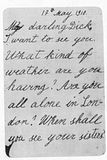 13th May, 1910.
My darling Dick
I want to see you.
What kind of
weather are you
having? Are you
all alone in Lon-
don? When shall
you see your sisters